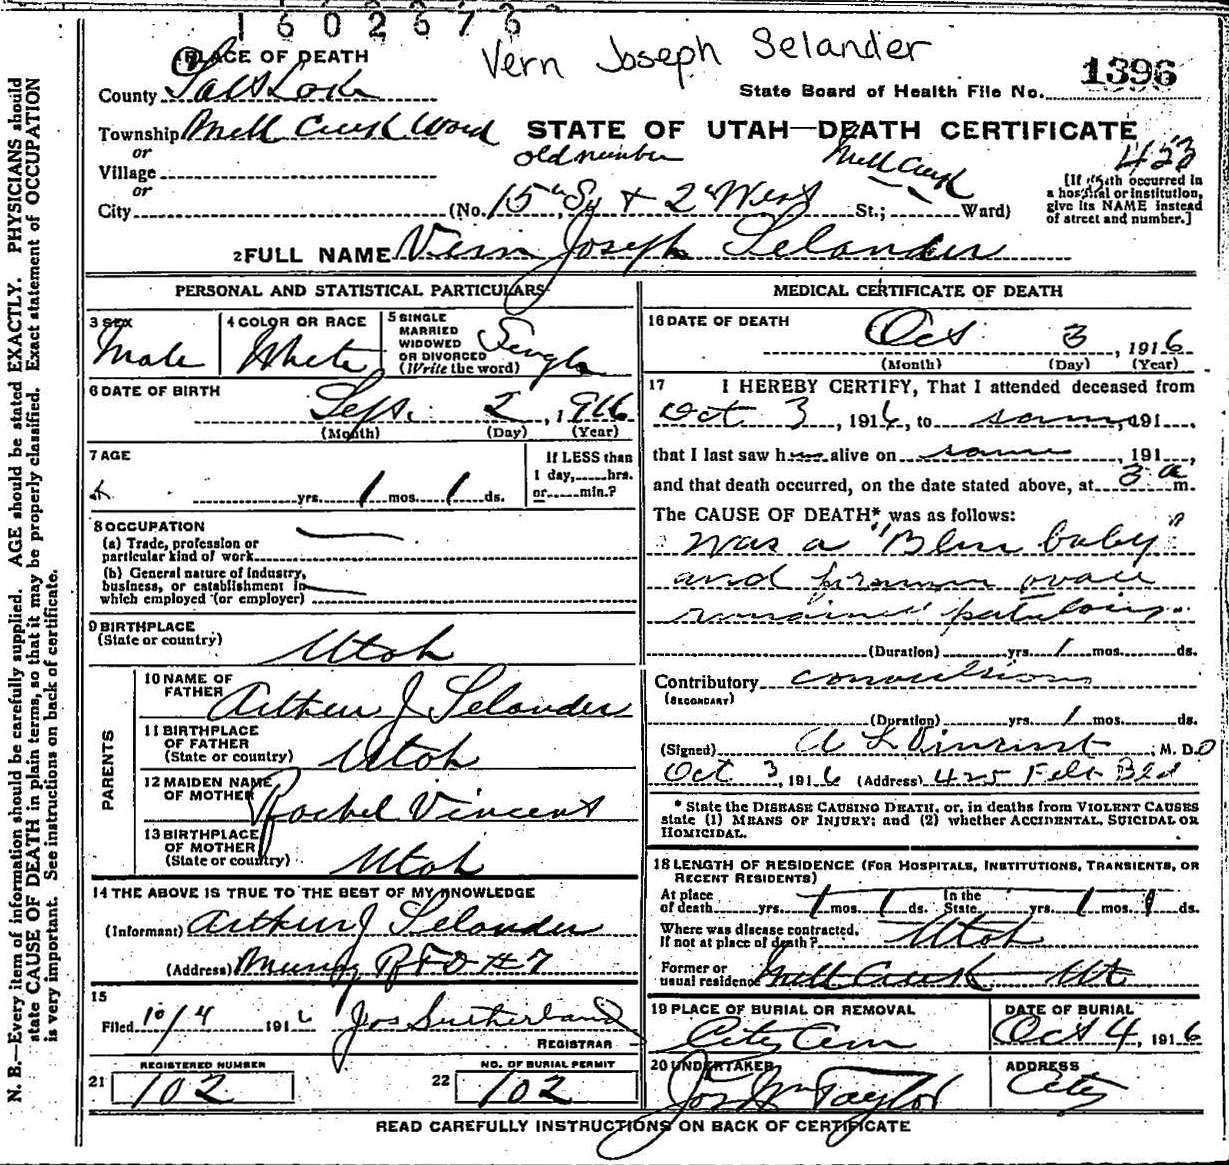 1602673
Vern Joseph Selander
PLACE OF DEATH
County Salt Lake
1396
State Board of Health File No.
Township Mill Creek Ward
or
STATE OF UTAH—DEATH CERTIFICATE
old number
Mill Creek
423
Village
or
City (No. 15th So + 2d West St.; Ward)
[If death occurred in a hospital or institution, give its NAME instead of street and number.]
2 FULL NAME Vern Joseph Selander
PERSONAL AND STATISTICAL PARTICULARS
3 SEX Male
4 COLOR OR RACE White
5 SINGLE MARRIED WIDOWED OR DIVORCED (Write the word) Single
6 DATE OF BIRTH Sept. 2, 1916
(Month) (Day) (Year)
7 AGE
yrs. 1 mos. 1 ds.
If LESS than 1 day, hrs. or min.?
8 OCCUPATION
(a) Trade, profession or particular kind of work
(b) General nature of industry, business, or establishment in which employed (or employer)
9 BIRTHPLACE (State or country) Utah
PARENTS
10 NAME OF FATHER Arthur J Selander
11 BIRTHPLACE OF FATHER (State or country) Utah
12 MAIDEN NAME OF MOTHER Rachel Vincent
13 BIRTHPLACE OF MOTHER (State or country) Utah
14 THE ABOVE IS TRUE TO THE BEST OF MY KNOWLEDGE
(Informant) Arthur J Selander
(Address) Murray RFD #7
15
Filed 10/4 1916 Jos Sutherland
REGISTRAR
21 REGISTERED NUMBER 102
22 NO. OF BURIAL PERMIT 102
MEDICAL CERTIFICATE OF DEATH
16 DATE OF DEATH Oct 3, 1916
(Month) (Day) (Year)
17 I HEREBY CERTIFY, That I attended deceased from
Oct 3, 1916, to same, 191
that I last saw h alive on same, 191
and that death occurred, on the date stated above, at 3 a m.
The CAUSE OF DEATH* was as follows:
was a "Blue baby"
and foramen ovale
remained patulous.
(Duration) yrs. 1 mos. ds.
Contributory convulsions
(SECONDARY)
(Duration) yrs. 1 mos. ds.
(Signed) A L Vincent, M. D.
Oct 3, 1916 (Address) 425 Felt Bld
* State the DISEASE CAUSING DEATH, or, in deaths from VIOLENT CAUSES
state (1) MEANS OF INJURY; and (2) whether ACCIDENTAL, SUICIDAL OR
HOMICIDAL.
18 LENGTH OF RESIDENCE (FOR HOSPITALS, INSTITUTIONS, TRANSIENTS, OR
RECENT RESIDENTS)
At place of death yrs. 1 mos. 1 ds. In the State yrs. 1 mos. 1 ds.
Where was disease contracted, If not at place of death? Utah
Former or usual residence Mill Creek Ut
19 PLACE OF BURIAL OR REMOVAL City Cem
DATE OF BURIAL Oct 4, 1916
20 UNDERTAKER Jos Wm Taylor
ADDRESS City
READ CAREFULLY INSTRUCTIONS ON BACK OF CERTIFICATE
N. B.—Every item of information should be carefully supplied. AGE should be stated EXACTLY. PHYSICIANS should
state CAUSE OF DEATH in plain terms, so that it may be properly classified. Exact statement of OCCUPATION
is very important. See instructions on back of certificate.